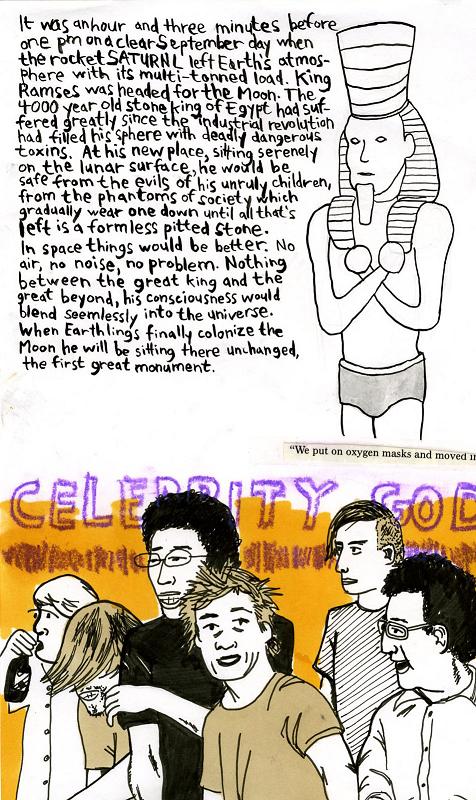 It was anhour and three minutes before
one pm on a clear September day when
the rocket SATURN1 left Earth's atmos-
phere with its multi-tonned load. King
Ramses was headed for the Moon. The
4000 year old stone king of Egypt had suf-
fered greatly since the industrial revolution
had filled his sphere with deadly dangerous
toxins. At his new place, sitting serenely
on the lunar surface, he would be
safe from the evils of his unruly children,
from the phantoms of society which
gradually wear one down until all that's
left is a formless pitted stone.
In space things would be better. No
air, no noise, no problem. Nothing
between the great king and the
great beyond, his consciousness would
blend seemlessly into the universe.
When Earthlings finally colonize the
Moon he will be sitting there unchanged,
the first great monument.
"We put on oxygen masks and moved in
CELEBRITY GOD